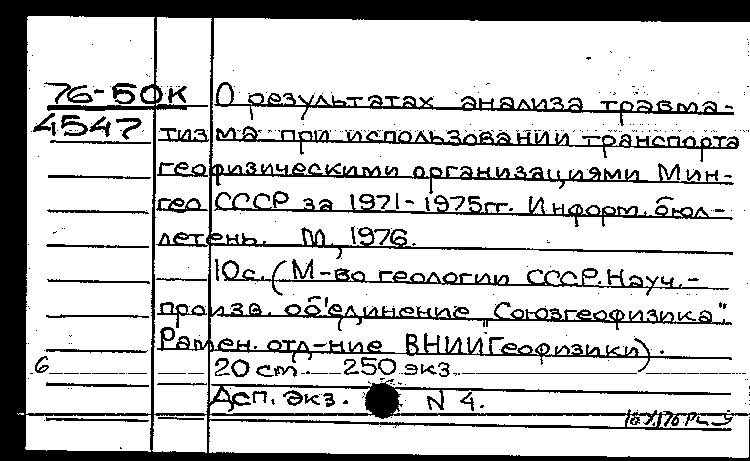 76-50К О результатах анализа травма-
4547 тизма при использовании транспорта
геофизическими организациями Мин-
гео СССР за 1971-1975гг. Информ. бюл-
летень. М, 1976.
10с. (М-во геологии СССР. Науч.-
произв. объединение „Союзгеофизика".
Рамен. отд-ние ВНИИГеофизики).
6 20 см. 250 экз.
Дсп. Экз. N 4.